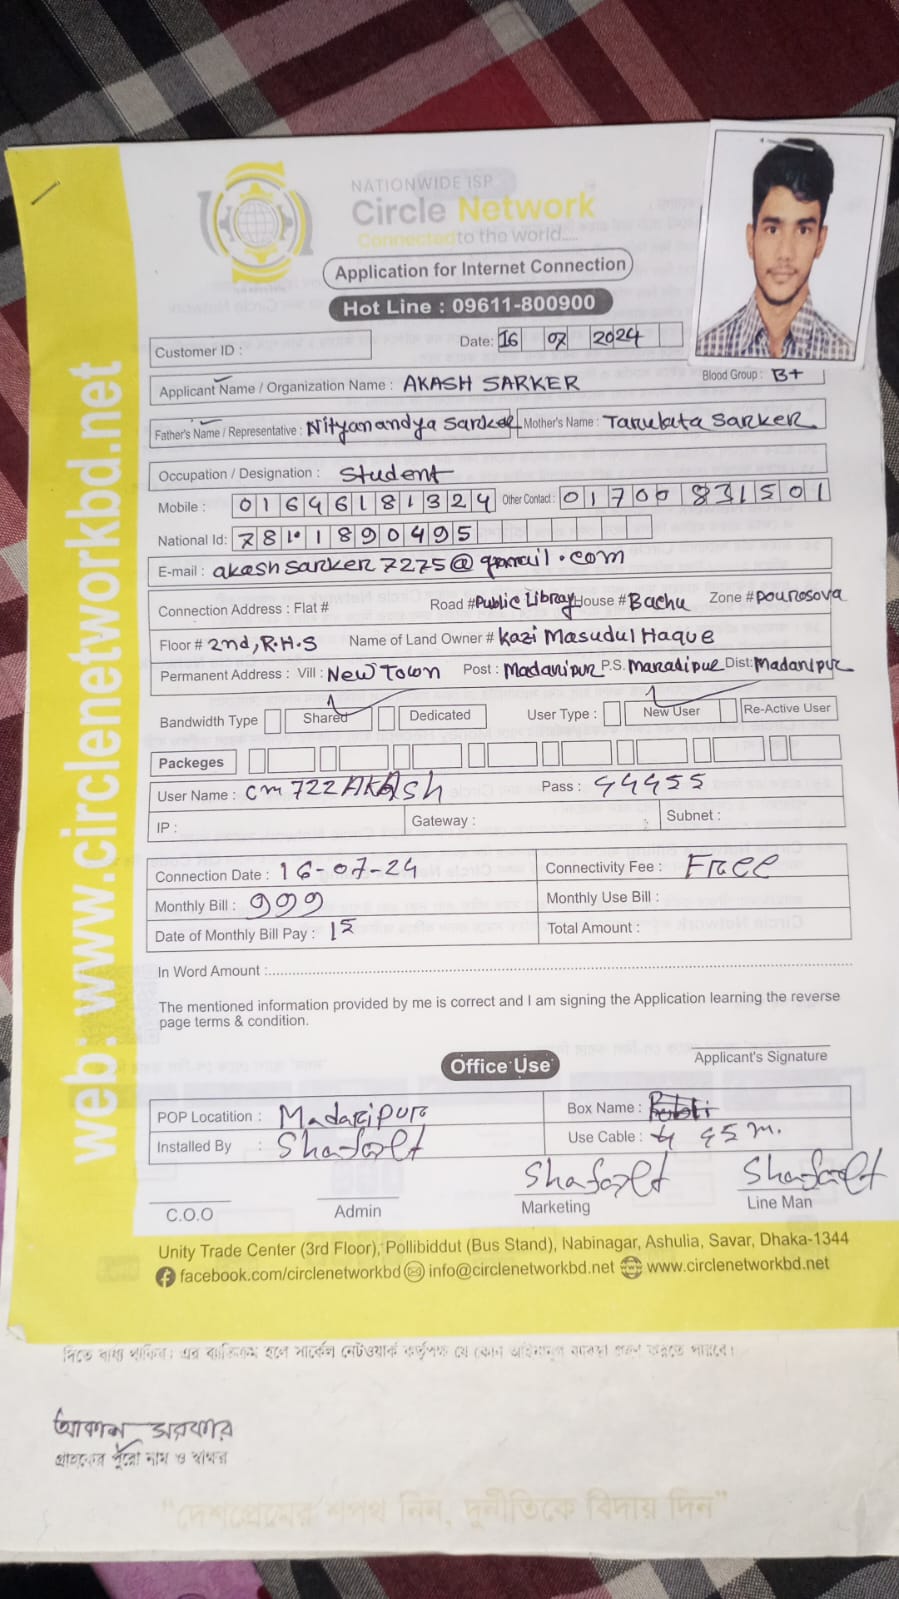 NATIONWIDE ISP
Circle Network
Connected to the world.....
Application for Internet Connection
Hot Line : 09611-800900
Customer ID :
Date: 16 07 2024
Blood Group : B+
Applicant Name / Organization Name : AKASH SARKER
Father's Name / Representative : Nityanandya Sarker Mother's Name : Tarulata Sarker
Occupation / Designation : Student
Mobile : 01646181324 Other Contact : 01700831501
National Id: 7811890495
E-mail : akashsarker7275@gmail.com
Connection Address : Flat # Road #Public Library House #Bachu Zone #Pourosova
Floor # 2nd, R.H.S Name of Land Owner # Kazi Masudul Haque
Permanent Address : Vill : New Town Post : Madaripur P.S. Madaripur Dist: Madaripur
Bandwidth Type Shared Dedicated User Type : New User Re-Active User
Packeges
User Name : cm722AKAsh Pass : 44455
IP : Gateway : Subnet :
Connection Date : 16-07-24 Connectivity Fee : Free
Monthly Bill : 999 Monthly Use Bill :
Date of Monthly Bill Pay : 15 Total Amount :
In Word Amount :
The mentioned information provided by me is correct and I am signing the Application learning the reverse
page terms & condition.
Applicant's Signature
Office Use
POP Locatition : Madaripur Box Name :
Installed By : Use Cable : 45 m.
C.O.O Admin Marketing Line Man
Unity Trade Center (3rd Floor), Pollibiddut (Bus Stand), Nabinagar, Ashulia, Savar, Dhaka-1344
facebook.com/circlenetworkbd info@circlenetworkbd.net www.circlenetworkbd.net
web: www.circlenetworkbd.net
দিতে বাধ্য থাকিব। এর ব্যতিক্রম হলে সার্কেল নেটওয়ার্ক কর্তৃপক্ষ যে কোন আইনানুগ ব্যবস্থা গ্রহণ করতে পারবে।
আকাশ সরকার
গ্রাহকের পুরো নাম ও স্বাক্ষর
"দেশপ্রেমের শপথ নিন, দুর্নীতিকে বিদায় দিন"